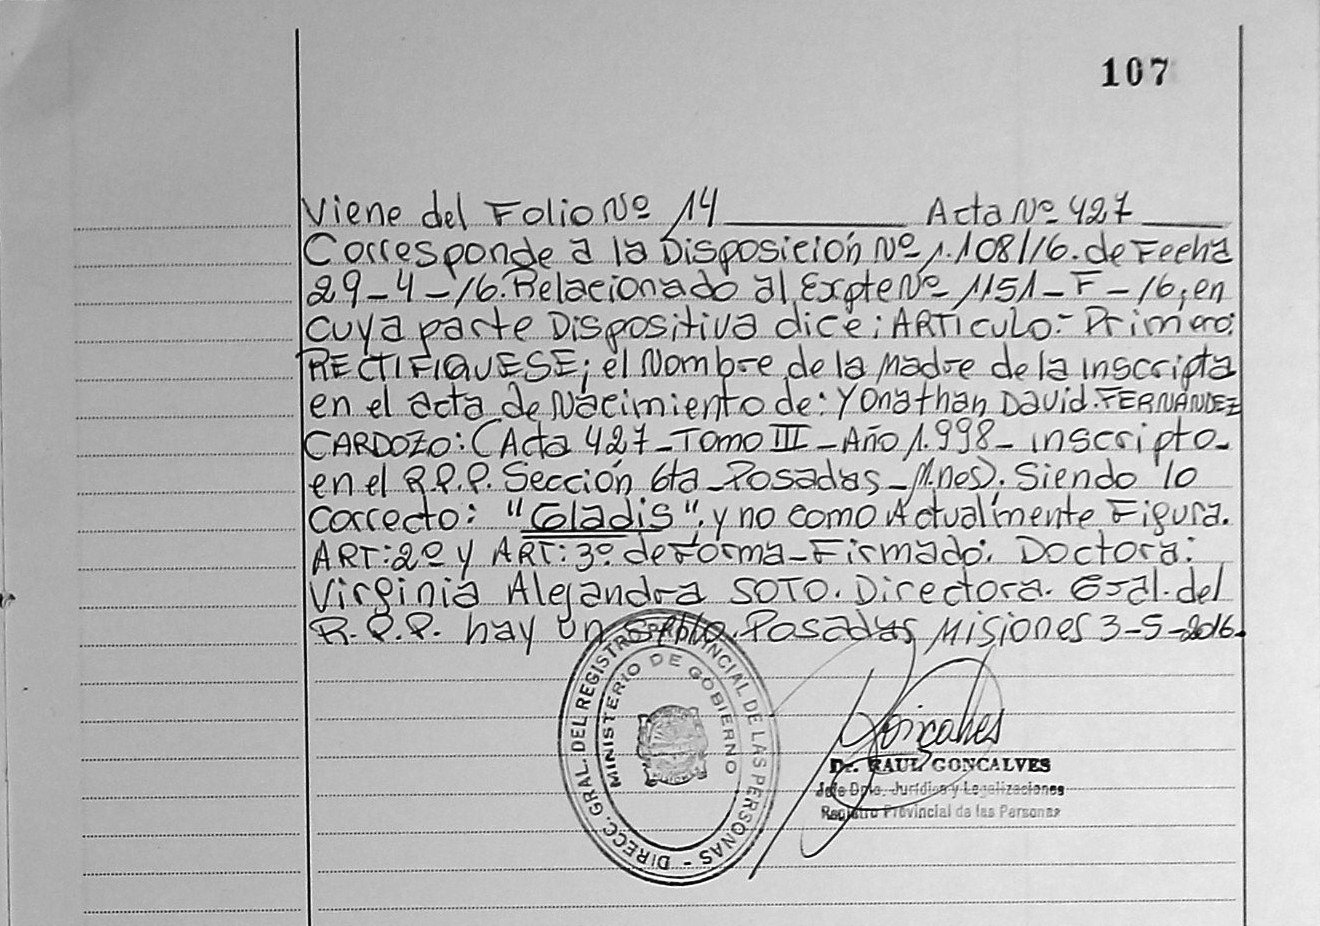 107
Viene del Folio Nº 14 Acta Nº 427
Corresponde a la Disposición Nº 1.108/16. de Fecha
29-4-16. Relacionado al Expte Nº 1151-F-16; en
cuya parte Dispositiva dice: ARTICULO:- Primero:
RECTIFIQUESE; el Nombre de la Madre de la inscripta
en el acta de Nacimiento de: Yonathan David. FERNANDEZ
CARDOZO: (Acta 427-Tomo III-Año 1.998- inscripto-
en el R.P.P. Sección 6ta-Posadas-M.nes). Siendo lo
correcto: "Gladis", y no como Actualmente Figura.
ART: 2º y ART: 3º. de Forma-Firmado. Doctora:
Virginia Alejandra SOTO. Directora. Gral. del
R.P.P. hay un sello. Posadas, Misiones 3-5-2016.
DIRECC. GRAL. DEL REGISTRO PROVINCIAL DE LAS PERSONAS -
MINISTERIO DE GOBIERNO
Gonçalves
Dr. RAUL GONCALVES
Jefe Dpto. Jurídico y Legalizaciones
Registro Provincial de las Personas